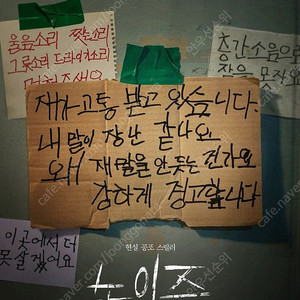 울음소리 짖는소리
그릇소리 드라이기소리
층간소음으로
잠을 못자요
제가 고통 받고 있습니다.
내 말이 장난 같나요
왜 제말을 안듣는 건가요
강하게 경고합니다
이곳에서 더
못 살겠어요
현실 공포 스릴러
노이즈